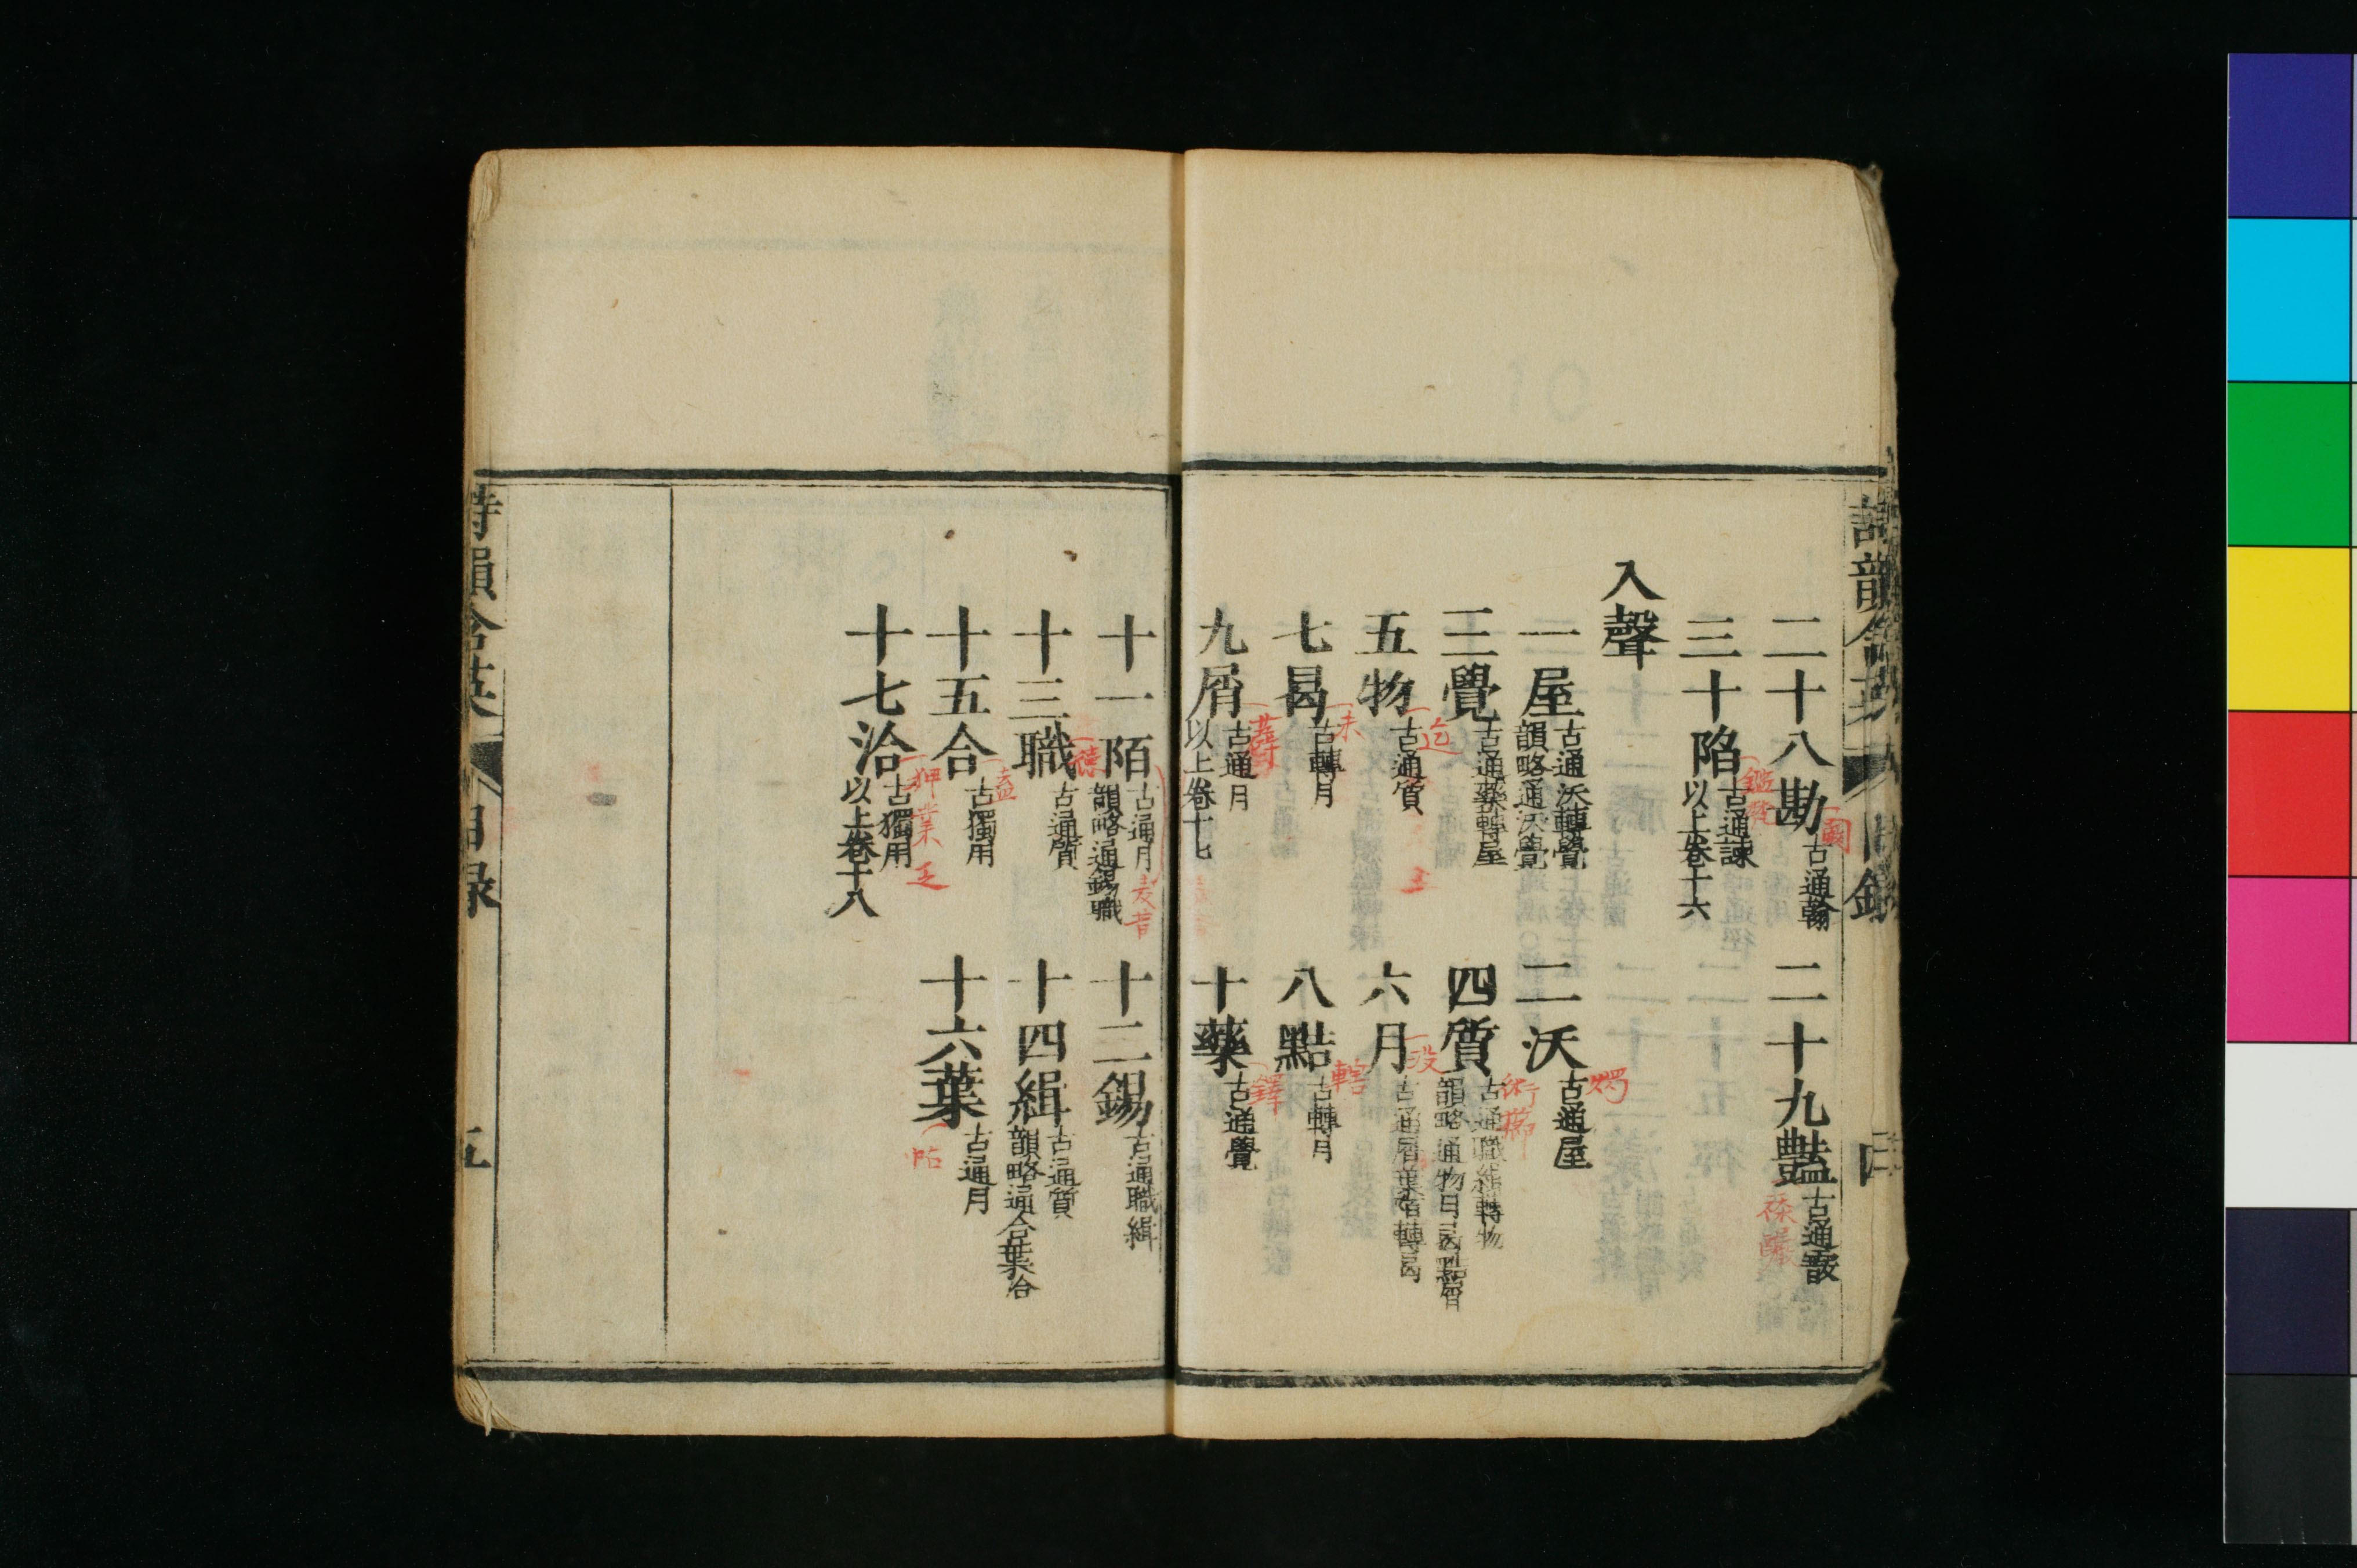 詩韻含英 目錄 四
二十八勘 古通翰 二十九豔 古通霰
三十陷 古通諫 以上卷十六
入聲
一屋 古通沃轉覺 韻略通沃覺 二沃 古通屋
三覺 古通藥轉屋 四質 古通職緝轉物 韻略通物月曷黠屑
五物 古通質 六月 古通屑葉陌轉曷
七曷 古轉月 八黠 古轉月
九屑 古通月 以上卷十七 十藥 古通覺
十一陌 古通月 韻略通錫職 十二錫 古通職緝
十三職 古通質 十四緝 古通質 韻略通合葉洽
十五合 古獨用 十六葉 古通月
十七洽 古獨用 以上卷十八
詩韻含英 目録 五
釅
鑑
燭
術櫛
迄
没
末
轄
薛
鐸
麥昔
德
盍
帖
狎業乏